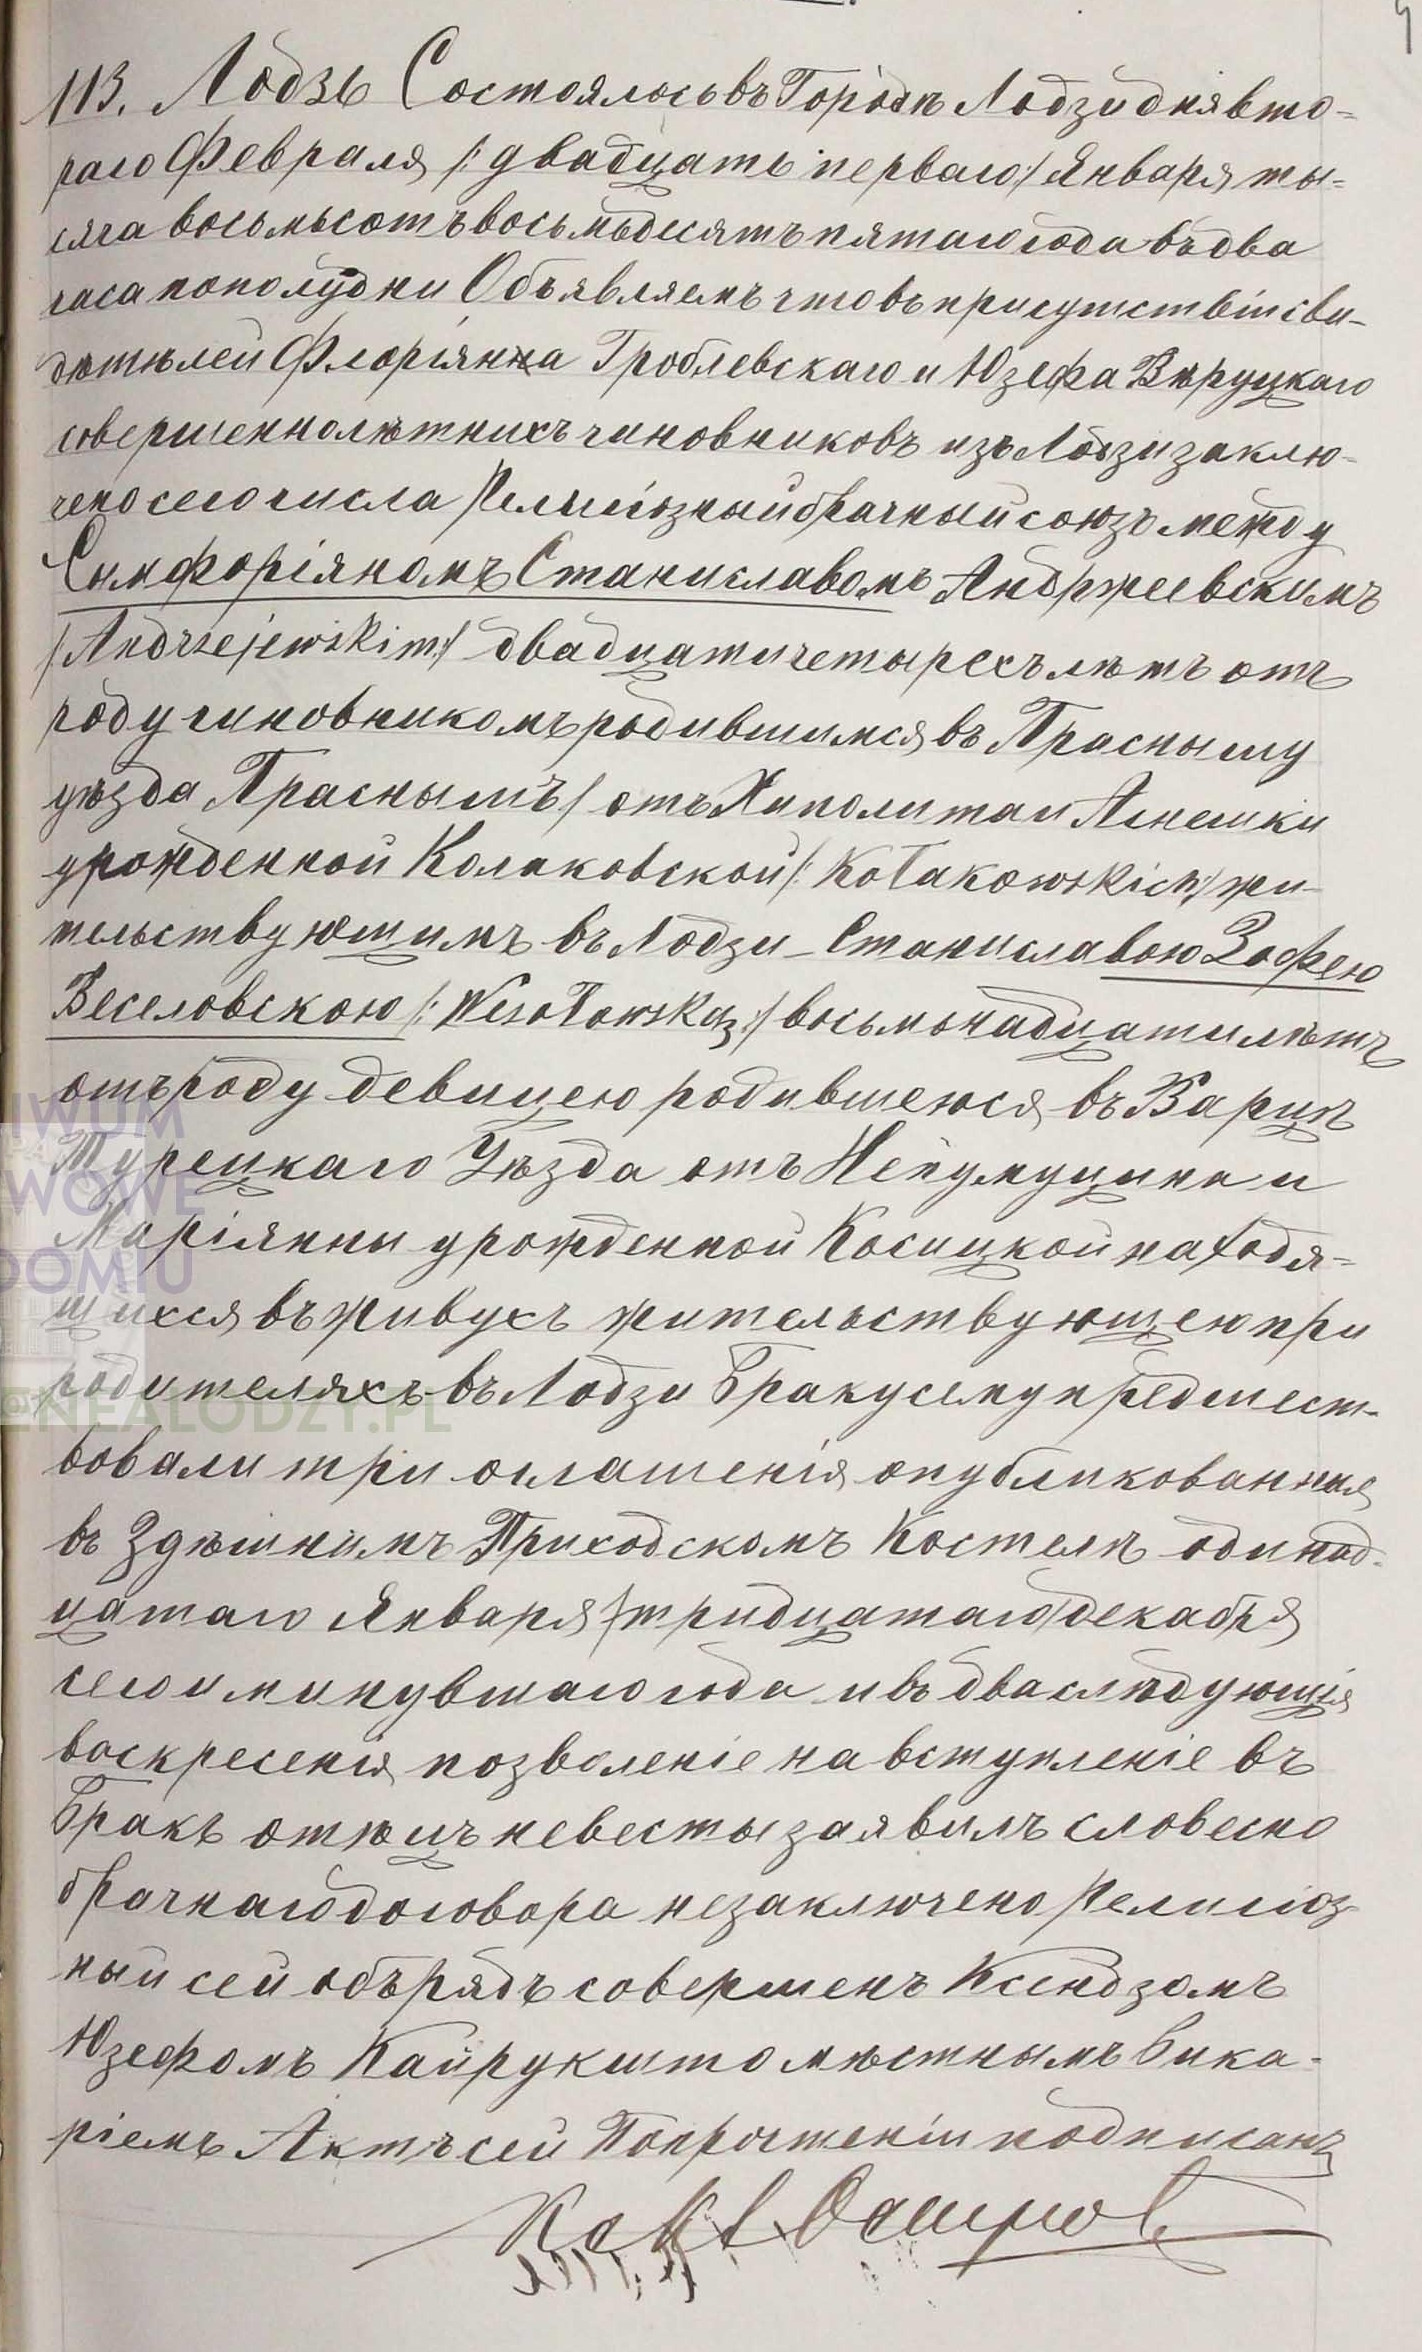 113. Лодзь Состоялось въ Городѣ Лодзи дня вто-
раго Февраля /: двадцать перваго :/ Января ты-
сяча восемьсотъ восемьдесятъ пятаго года въ два
часа пополудни Объявляемъ что въ присутствіи сви-
дѣтѣлей Флоріянна Гроблевскаго и Юзефа Вѣруцкаго
совершеннолѣтнихъ чиновниковъ изъ Лодзи заклю-
чено сего числа Религіозный брачный союзъ между
Симфоріяномъ Станиславомъ Андржеевскимъ
/Andrzejewskim:/ двадцати четырехъ лѣтъ отъ
роду чиновникомъ родившимся въ Праснышу
уѣзда Праснышъ/ отъ Хиполита и Агнешки
урожденной Колаковской /: Kołakowskich :/ жи-
тельствующимъ въ Лодзи – Станиславою Зофею
Веселовскою /: Wesołowską :/ восьмонадцати лѣтъ
отъ роду девицею родившеюся въ Варцѣ
Турецкаго Уѣзда отъ Непумуцина и
Маріянны урожденной Косицкой находя-
щихся въ живухъ жительствующею при
родителяхъ въ Лодзи Браку сему предшест-
вовали три оглашенія опубликованныя
въ Здѣшнимъ Приходскомъ Костелѣ одинад-
цатаго Января /тридцатаго/ декабря
сего и минувшаго года и въ два слѣдующія
воскресенія позволеніе на вступленіе въ
Бракъ отѣцъ невесты заявилъ словесно
брачнаго договора незаключено Религіоз-
ный сей обърядъ совершенъ Ксендзомъ
Юзефомъ Кайрукшто мѣстнымъ Вика-
ріемъ Актъ сей По прочтеніи подписанъ